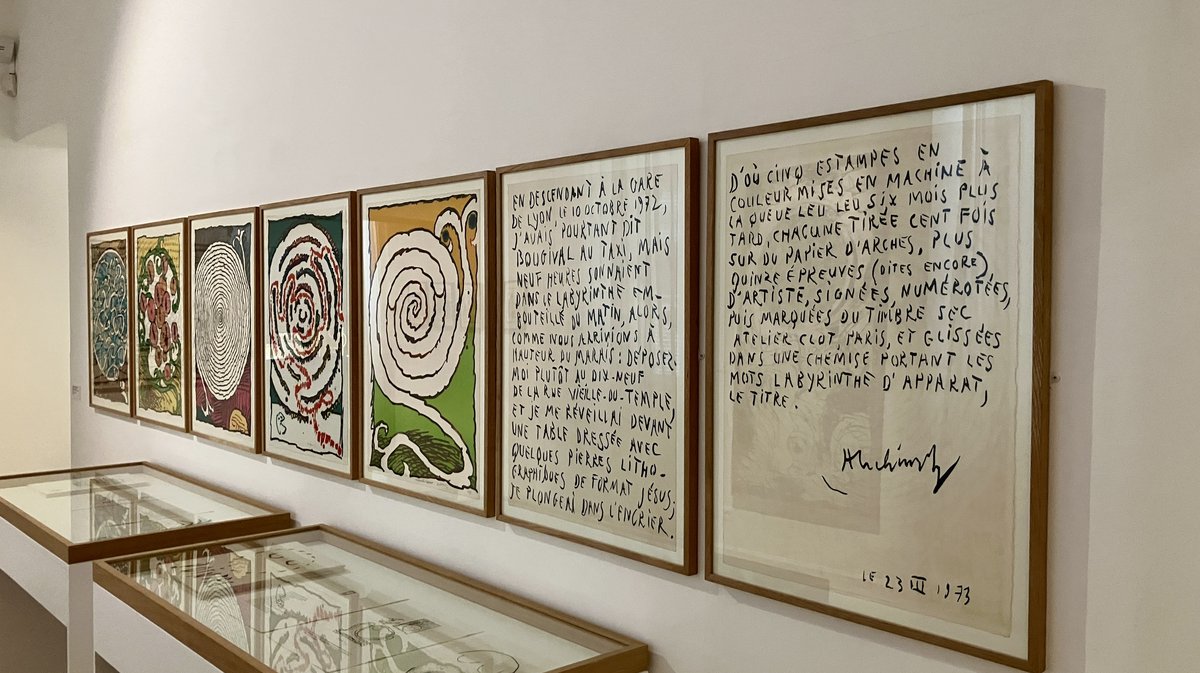 EN DESCENDANT À LA GARE
DE LYON, LE 10 OCTOBRE 1972,
J'AVAIS POURTANT DIT
BOUGIVAL AU TAXI, MAIS
NEUF HEURES SONNAIENT
DANS LE LABYRINTHE EM-
BOUTEILLÉ DU MATIN, ALORS,
COMME NOUS ARRIVIONS À
HAUTEUR DU MARAIS: DÉPOSEZ-
MOI PLUTÔT AU DIX-NEUF
DE LA RUE VIEILLE-DU-TEMPLE,
ET JE ME RÉVEILLAI DEVANT
UNE TABLE DRESSÉE AVEC
QUELQUES PIERRES LITHO-
GRAPHIQUES DE FORMAT JÉSUS;
JE PLONGEAI DANS L'ENCRIER.
D'OÙ CINQ ESTAMPES EN
COULEUR MISES EN MACHINE À
LA QUEUE LEU LEU SIX MOIS PLUS
TARD, CHACUNE TIRÉE CENT FOIS
SUR DU PAPIER D'ARCHES, PLUS
QUINZE ÉPREUVES (DITES ENCORE)
D'ARTISTE, SIGNÉES, NUMÉROTÉES,
PUIS MARQUÉES DU TIMBRE SEC
ATELIER CLOT, PARIS, ET GLISSÉES
DANS UNE CHEMISE PORTANT LES
MOTS LABYRINTHE D'APPARAT,
LE TITRE.
Alechinsky
LE 23 VII 1973